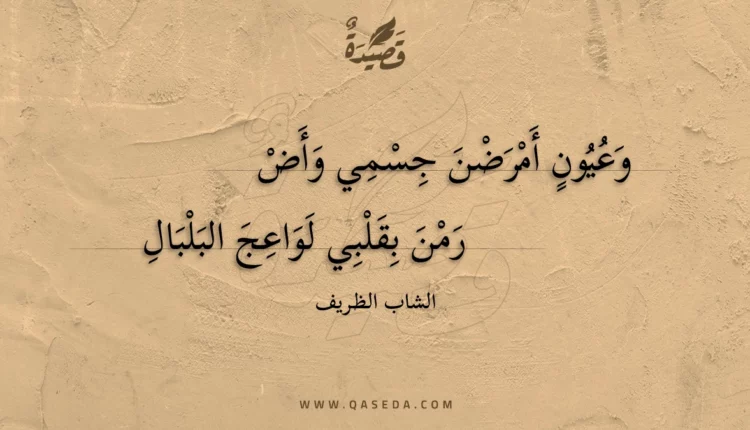 قَصِيْدَةٌ
وَعُيُونٍ أَمْرَضْنَ جِسْمِي وَأَضْ
رَمْنَ بِقَلْبِي لَوَاعِجَ البَلْبَالِ
الشاب الظريف
WWW.QASEDA.COM